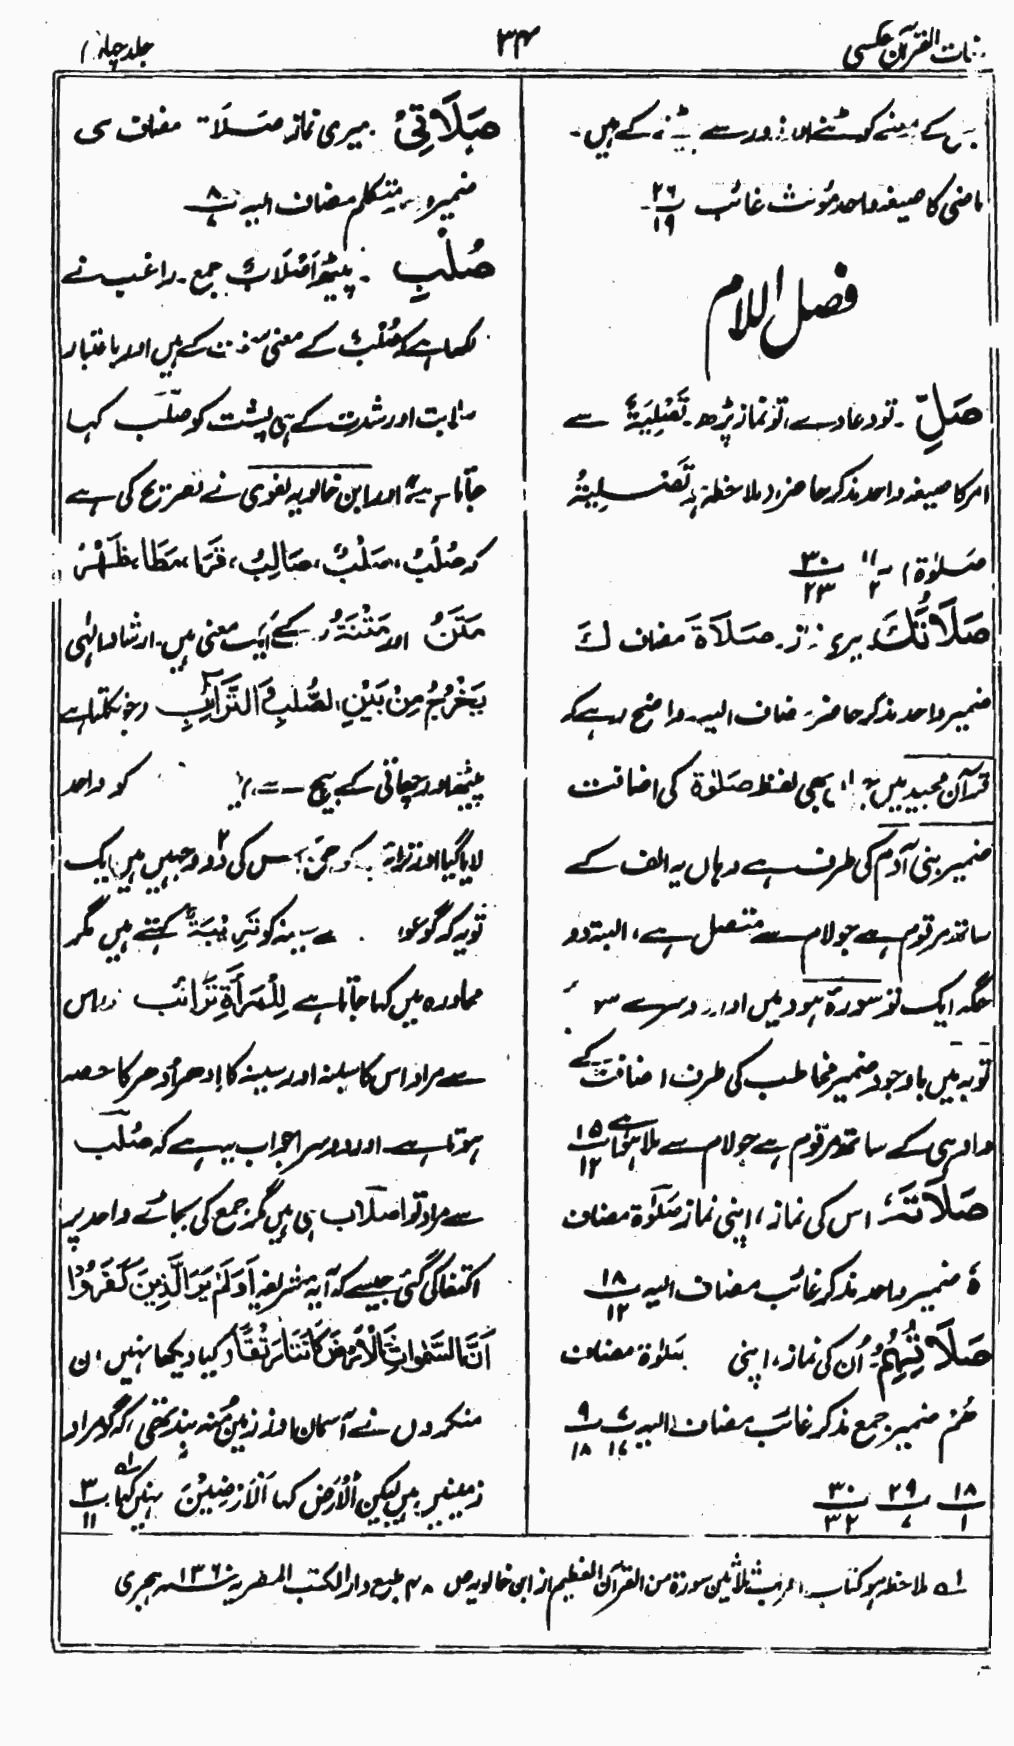 لغات القرآن عکسی
۳۴
جلد چہار
جس کے معنے کوٹنے اور زور سے پیٹنے کے ہیں۔
ماضی کا صیغہ واحد مؤنث غائب ۲۶/۱۹
فصل اللام
صَلِّ ۔ تو دعا دے، تو نماز پڑھ۔ تَصْلِیَۃٌ سے
امر کا صیغہ واحد مذکر حاضر (ملاحظہ ہو تَصْلِیَۃُ
صَلٰوۃ) ۱۱/۲ ۳۰/۲۳
صَلَاتُکَ تیری نماز۔ صَلَاۃَ مضاف لَکَ
ضمیر واحد مذکر حاضر مضاف الیہ۔ واضح رہے کہ
قرآن مجید میں جہاں بھی لفظ صَلٰوۃ کی اضافت
ضمیر بنی آدم کی طرف ہے وہاں یہ الف کے
ساتھ مرقوم ہے جو لام سے متصل ہے، البتہ دو
جگہ ایک تو سورۂ ہود میں اور دوسرے سورہ
توبہ میں باوجود ضمیر مخاطب کی طرف اضافت کے
واؤ ہی کے ساتھ مرقوم ہے جو لام سے ملا ہوا ہے ۱۵/۱۲
صَلَاتَہٗ اس کی نماز، اپنی نماز صَلٰوۃ مضاف
ہٗ ضمیر واحد مذکر غائب مضاف الیہ ۱۸/۱۲
صَلَاتِہِمْ اُن کی نماز، اپنی صَلٰوۃ مضاف
ھُمْ ضمیر جمع مذکر غائب مضاف الیہ ۷/۱۷ ۹/۱۸
۱۸/۱ ۲۹/۷ ۳۰/۳۲
صَلَاتِیْ ۔ میری نماز صَلَاۃ مضاف ی
ضمیر واحد متکلم مضاف الیہ ۸/۷
صُلْبِ ۔ پیٹھ اَصْلَابٌ جمع۔ راغب نے
لکھا ہے کہ صُلْبٌ کے معنی سخت کے ہیں اور باعتبار
صلابت اور شدت کے ہی پشت کو صُلْب کہا
جاتا ہے اور ابن خالویہ لغوی نے تصریح کی ہے
کہ صُلْبُ، صَلَبٌ، صَالِبُ، قَرَا، مَطَا، ظَہْرُ
مَتَنُ اور مَتْنَۃُ، کے ایک معنی ہیں۔ ارشاد الٰہی
یَخْرُجُ مِنْ بَیْنِ الصُّلْبِ وَ التَّرَآئِبِ (جو نکلتا ہے
پیٹھ اور چھاتی کے بیچ سے) میں کو واحد
لایا گیا اور ترائب کو جمع، اس کی دو وجہیں ہیں ایک
تو یہ کہ گو سینہ کو تَرِیْبَۃٌ کہتے ہیں مگر
محاورہ میں کہا جاتا ہے لِلْمَرْأَۃِ تَرَائِبُ اس
سے مراد اس کا سینہ اور سینہ کا اِدھر اُدھر کا حصہ
ہوتا ہے۔ اور دوسرا جواب یہ ہے کہ صُلْب
سے مراد تو اصلاب ہی ہیں مگر جمع کی بجائے واحد پر
اکتفا کی گئی جیسے کہ آیہ شریفہ اَوَلَمْ یَرَ الَّذِیْنَ کَفَرُوْا
اَنَّ السَّمٰوٰتِ وَالْاَرْضَ کَانَتَا رَتْقًا (کیا دیکھا نہیں ان
منکروں نے آسمان اور زمین منہ بند تھی) کہ گو مراد
زمینیں ہیں لیکن اَلْاَرْض کہا اَلْاَرْضِیْنَ نہیں کہا ۳/۱۱
لہ ملاحظہ ہو کتاب اعراب ثلاثین سورۃ من القرآن العظیم از ابن خالویہ ص ۴۸ طبع دار الکتب المصریہ ۱۳۶۰ ہجری